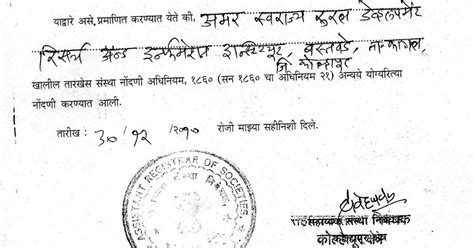 याद्वारे असे, प्रमाणित करण्यात येते की, अमर स्वराज्य रुरल डेव्हलपमेंट
रिसर्च अँन्ड इन्फर्मेशन इन्स्टिट्यूट, वस्तवडे, ता. कागल,
जि. कोल्हापूर
खालील तारखेस संस्था नोंदणी अधिनियम, १८६० (सन १८६० चा अधिनियम २१) अन्वये योग्यरित्या
नोंदणी करण्यात आली.
तारीख : ३० / १२ /२०१० रोजी माझ्या सहीनिशी दिले.
ASSISTANT REGISTRAR OF SOCIETIES
सहाय्यक संस्था निबंधक